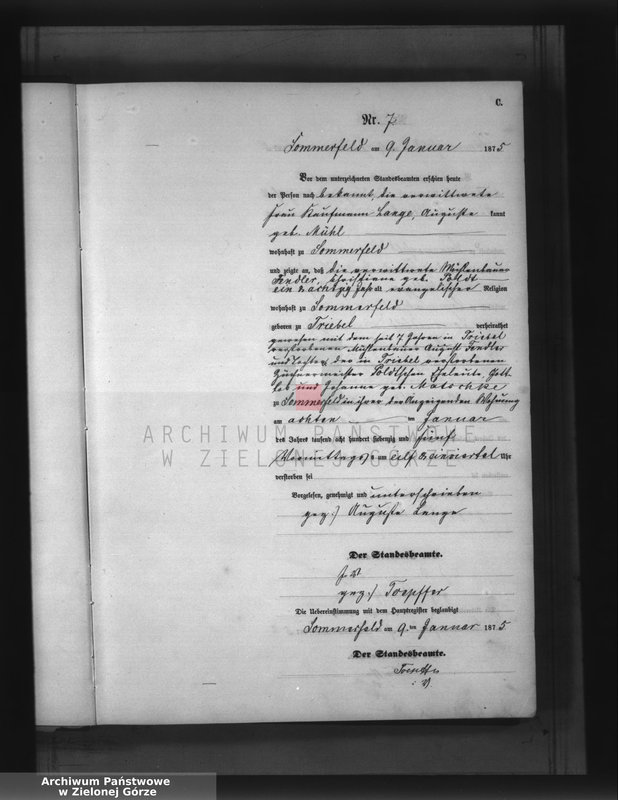 C.
Nr. 7.
Sommerfeld am 9. Januar 1875
Vor dem unterzeichneten Standesbeamten erschien heute
der Person nach bekannt, die verwittwete
Frau Kaufmann Lange, Auguste kannt
geb. Mühl
wohnhaft zu Sommerfeld
und zeigte an, daß die verwittwete Mühlenbauer
Fendler, Christiane geb. Poldt
ein & achtzig Jahr alt evangelischer Religion
wohnhaft zu Sommerfeld
geboren zu Triebel verheirathet
gewesen mit dem seit 7 Jahren in Triebel
verstorbenen Mühlenbauer August Fendler
und Tochter der in Triebel verstorbenen
Züchnermeister Poldtschen Eheleute, Gott
lob und Johanne geb. Matschke
zu Sommerfeld in ihrer der Anzeigenden Wohnung
am achten ten Januar
des Jahres tausend acht hundert siebenzig und fünf
Vormittags um elf & ein viertel Uhr
verstorben sei
Vorgelesen, genehmigt und unterschrieben
gez.) Auguste Lange
Der Standesbeamte.
J. V.
gez.) Toepffer
Die Uebereinstimmung mit dem Hauptregister beglaubigt
Sommerfeld am 9 ten Januar 1875
Der Standesbeamte.
ARCHIWUM PAŃSTWOWE
W ZIELONEJ GÓRZE
Archiwum Państwowe
w Zielonej Górze